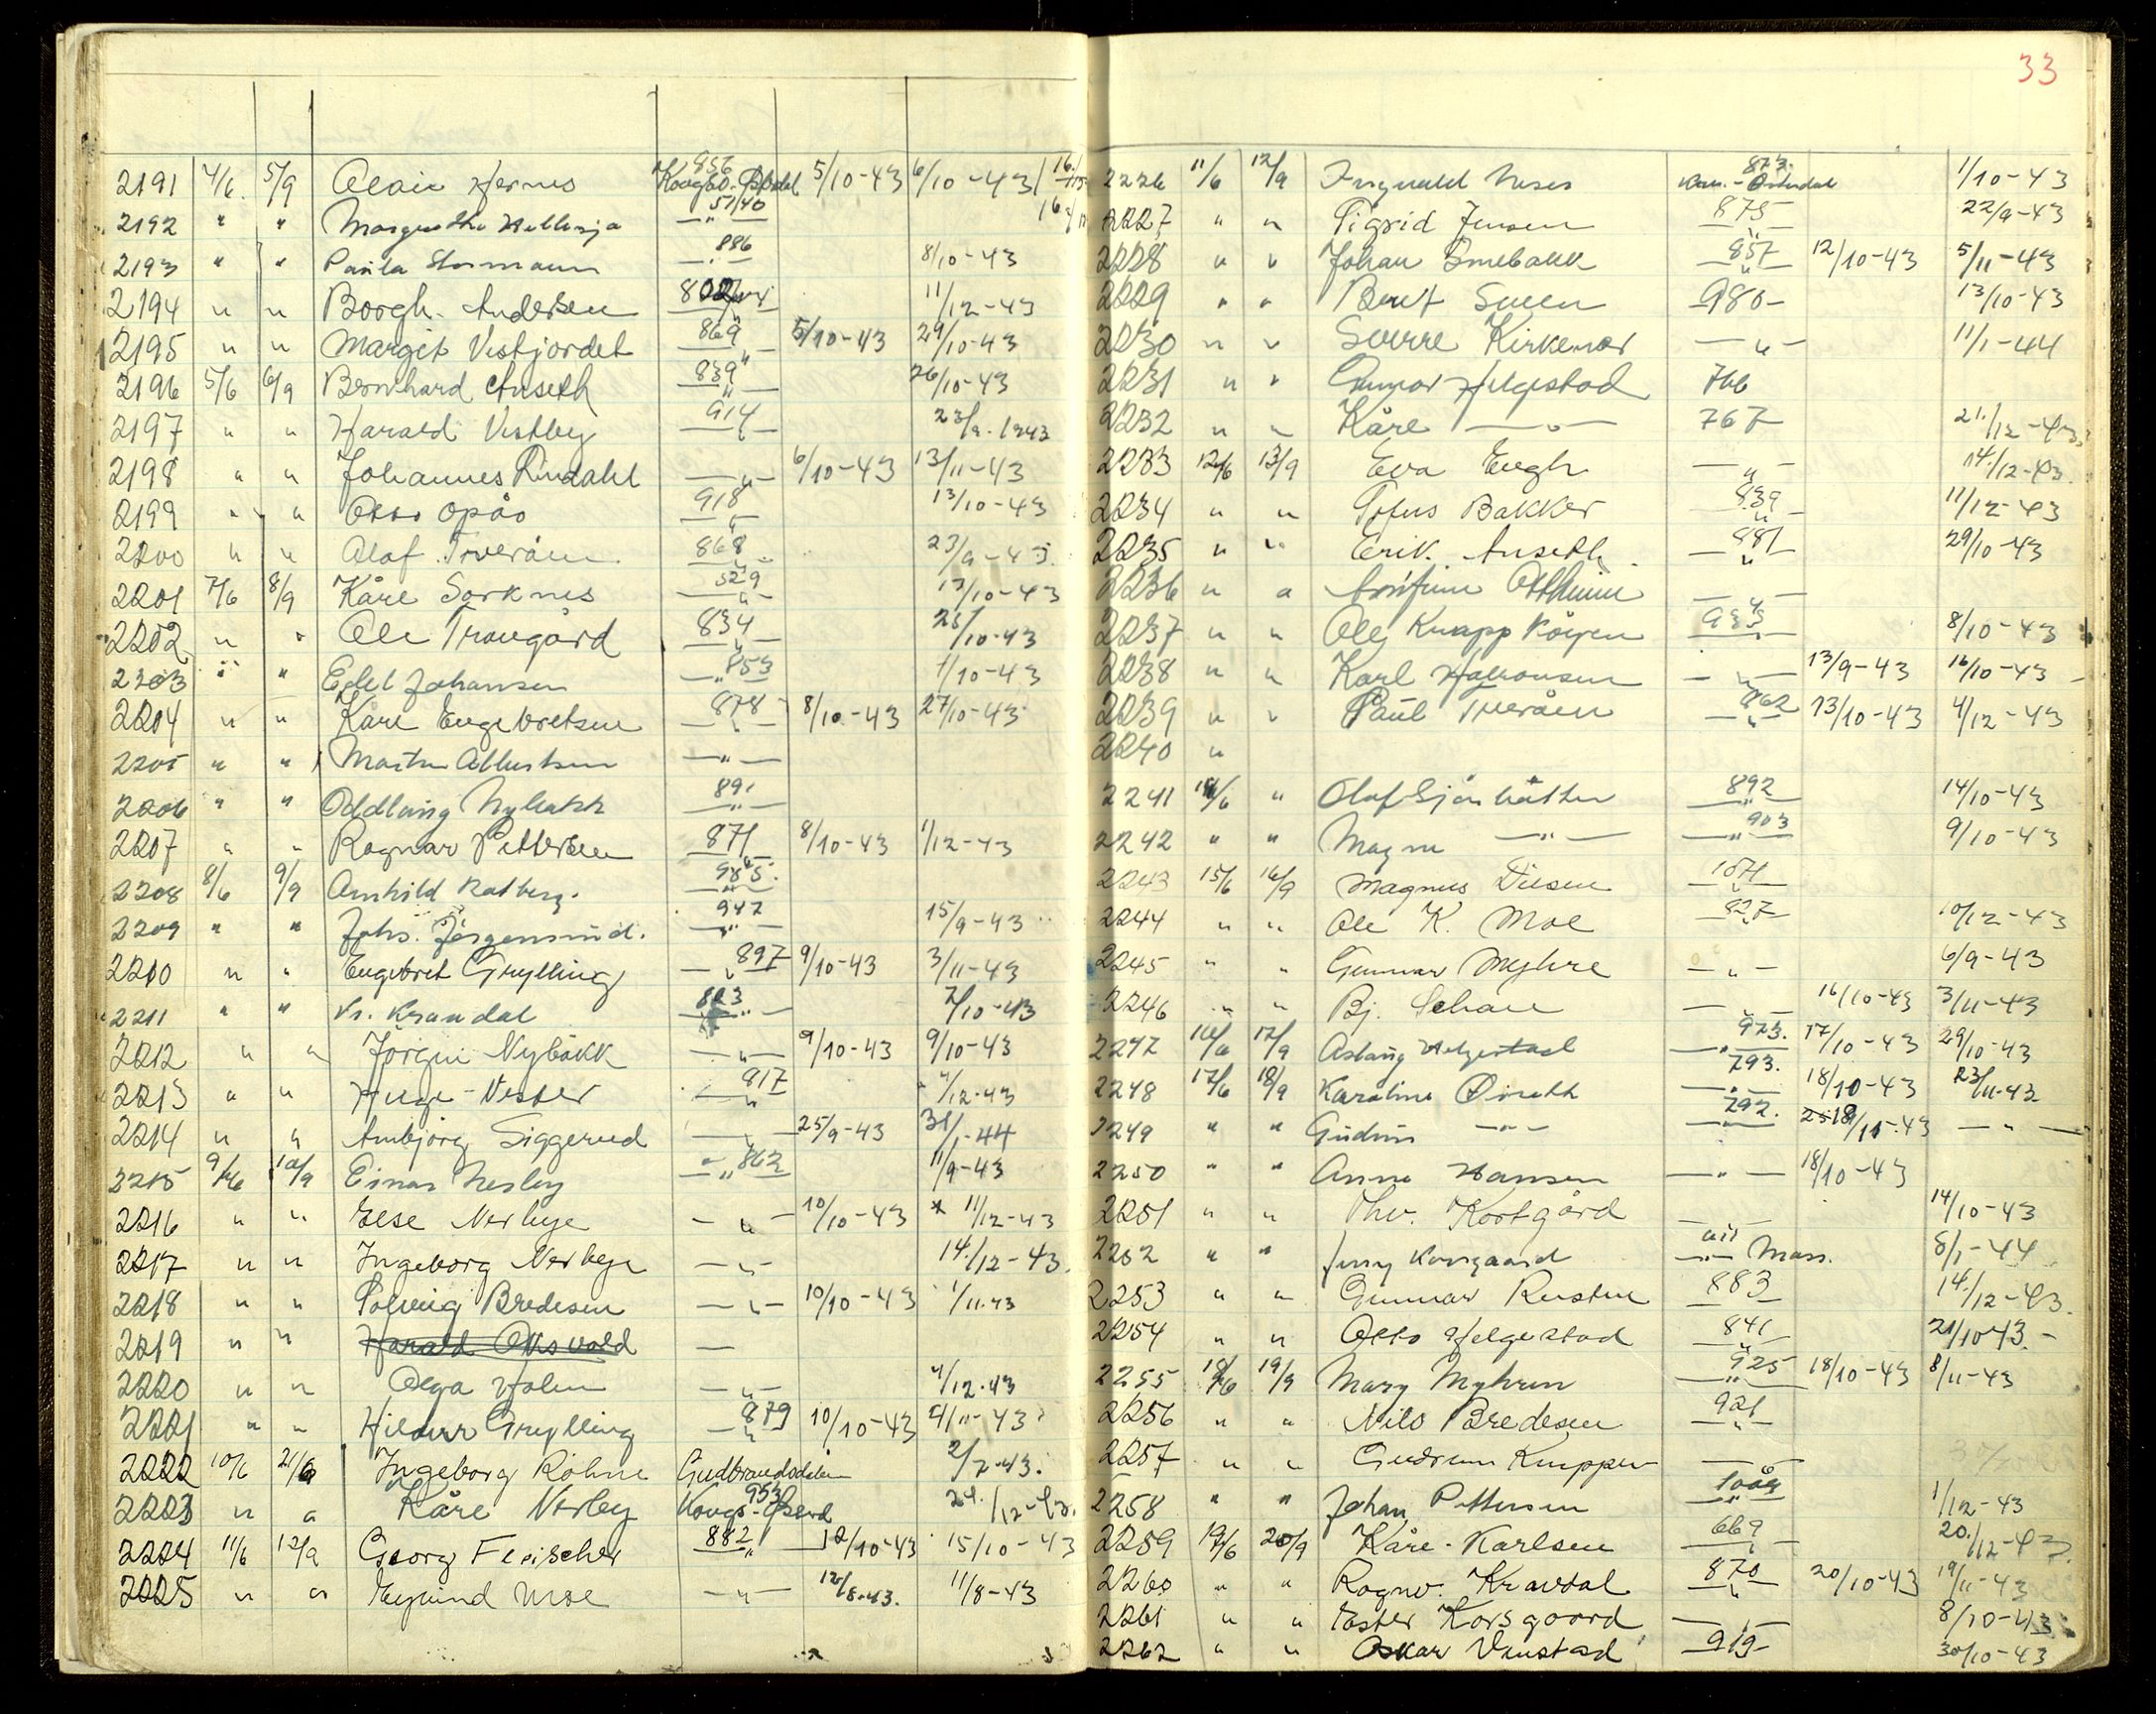 33
2191 4/6. 5/9 Olaiv Hernes 856 Kongsv.-Østdal 5/10-43 6/10-43
2192 " " Margrethe 51/40 —"—
2193 " " Paula Stormann 886 —"— 8/10-43
2194 " " Borgh. Andersen 11/12-43
2195 " " Margit Vestjordet 869 —"— 5/10-43 29/10-43
2196 5/6 6/9 Bernhard Anseth 839 —"— 26/10-43
2197 " " Harald Vestby 914 —"— 23/9.1943
2198 " " Johannes Rindahl —"— 6/10-43 13/11-43
2199 " " Otto Opås 918 —"— 13/10-43
2200 " " Olaf Tveråen 868 —"— 23/9-43.
2201 7/6 8/9 Kåre Sorknes 529 —"— 13/10-43
2202 " " Ole Trangård 834 —"— 10-43
2203 " " Edel Johansen —"— 853 1/10-43
2204 " " Kåre Engebretsen 878 —"— 8/10-43 27/10-43
2205 " " Martin Albertsen —"—
2206 " " Oddlaug Nybakk 891 —"—
2207 " " Ragnar Pettersen 871 —"— 8/10-43 1/12-43
2208 8/6 9/9 Arnhild 985. —"—
2209 " " Johs. Jörgensrud. 947 —"— 15/9-43
2210 " " Engebret Grylling —"— 897 9/10-43 3/11-43
2211 " " Kr. Kravdal 823 —"— 2/10-43
2212 " " Jörgen Nybakk —"— 9/10-43 9/10-43
2213 " " Hege Vester 817 —"— 4/12-43
2214 " " Ambjörg Siggerud —"— 25/9-43 31/1-44
2215 9/6 10/9 Einar Nesby —"— 862 11/9-43
2216 " " Else Nerbye —"— 10/10-43 * 11/12-43
2217 " " Ingeborg Nerbye —"— 14./12-43.
2218 " " Solveig Bredesen —"— 10/10-43 1/11.43
2219 " " Harald Oksvold —
2220 " " Olga Holm —"— 4/12.43
2221 " " Hildur Grylling 879 —"— 10/10-43 9/11-43
2222 10/6 21/6 Ingeborg Röhne Gudbrandsdalen 2/7-43.
2223 " " Kåre Nerby 953 24./12-43.
2224 11/6 12/9 Georg Fleischer 882 —"— 12/10-43 15/10-43
2225 " " Eyvind Moe —"— 12/8.43. 11/8-43
2226 11/6 12/9 Ingvald Neses 873. Kon.-Østerdal 1/10-43
2227 " " Sigrid Jensen 875 —"— 22/9-43
2228 " " Johan Smebakk 857 —"— 12/10-43 5/11-43
2229 " " Berit Sveen 980- 13/10-43
2230 " " Sverre Kirkenær —"— 11/1-44
2231 " " Gunnar Helgestad 766
2232 " " Kåre —"— 767 21./12-43.
2233 12/6 13/9 Eva Engh —"— 14./12-43.
2234 " " Sofus Bakker 839 —"— 11/12-43
2235 " " Erik Anseth 881 —"— 29/10-43
2236 " " Arnfinn —"—
2237 " " Ole Knapp 933 —"— 8/10-43
2238 " " Karl Håkonsen —"— 13/9-43 16/10-43
2239 " " Paul Tveråen 962 —"— 13/10-43 4/12-43
2240 "
2241 14/6 " Olaf Sjölihåtten 892 —"— 14/10-43
2242 " " Magne —"— 903 —"— 9/10-43
2243 15/6 16/9 Magnus Diesen 1071 —"—
2244 " " Ole K. Moe 827 —"— 10/12-43
2245 " " Gunnar Myhre —"— 6/9-43
2246 " " Bj. —"— 16/10-43 3/11-43
2247 16/6 17/9 Aslaug Helgestad —"— 973. 17/10-43 29/10-43
2248 17/6 18/9 Karoline 793. —"— 18/10-43 23/11-43
2249 " " Gudrun —"— 792. —"— —"—
2250 " " Anna Hansen —"— 18/10-43
2251 " " Thv. Korsgård —"— 14/10-43
2252 " " Jenny Korsgaard —"— 8/1-44
2253 " " Gunnar Rusten 883 14./12-43.
2254 " " Otto Helgestad 841 —"— 21/10 43.-
2255 18/6 19/9 Mary Myhren 925 —"— 18/10-43 8/11-43
2256 " " Nils Bredesen 921 —"—
2257 " " Gudrun Knapper —"—
2258 " " Johan Pettersen —"— 1/12-43
2259 19/6 20/9 Kåre Karlsen 669 —"— 20./12-43.
2260 " " Ragnv. Kravdal 870 —"— 20/10-43 19/11-43
2261 " " Ester Korsgaard —"— 8/10-43
2262 " " Oskar Vinstad 919 30/10-43